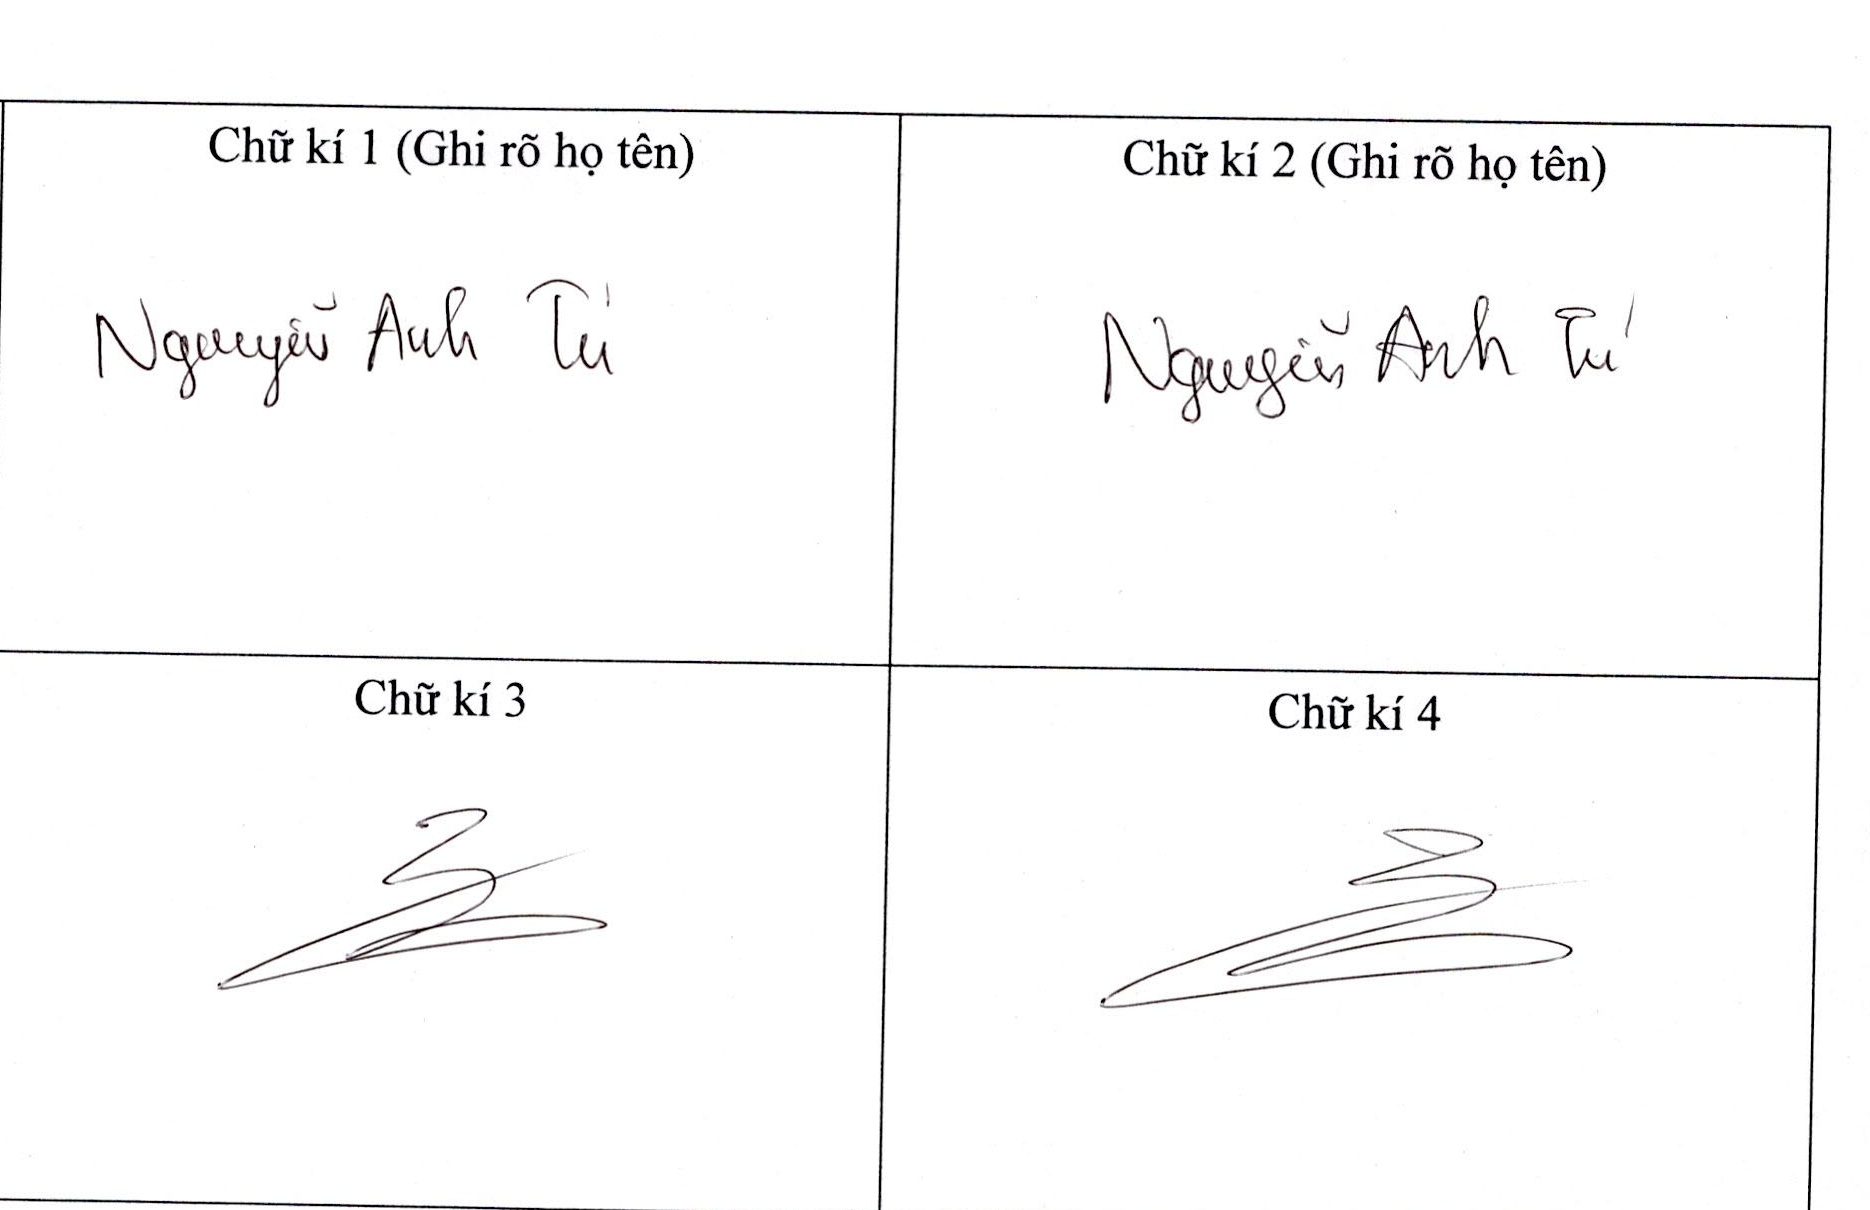 Chữ kí 1 (Ghi rõ họ tên)
Chữ kí 2 (Ghi rõ họ tên)
Nguyễn Anh Tú
Nguyễn Anh Tú
Chữ kí 3
Chữ kí 4